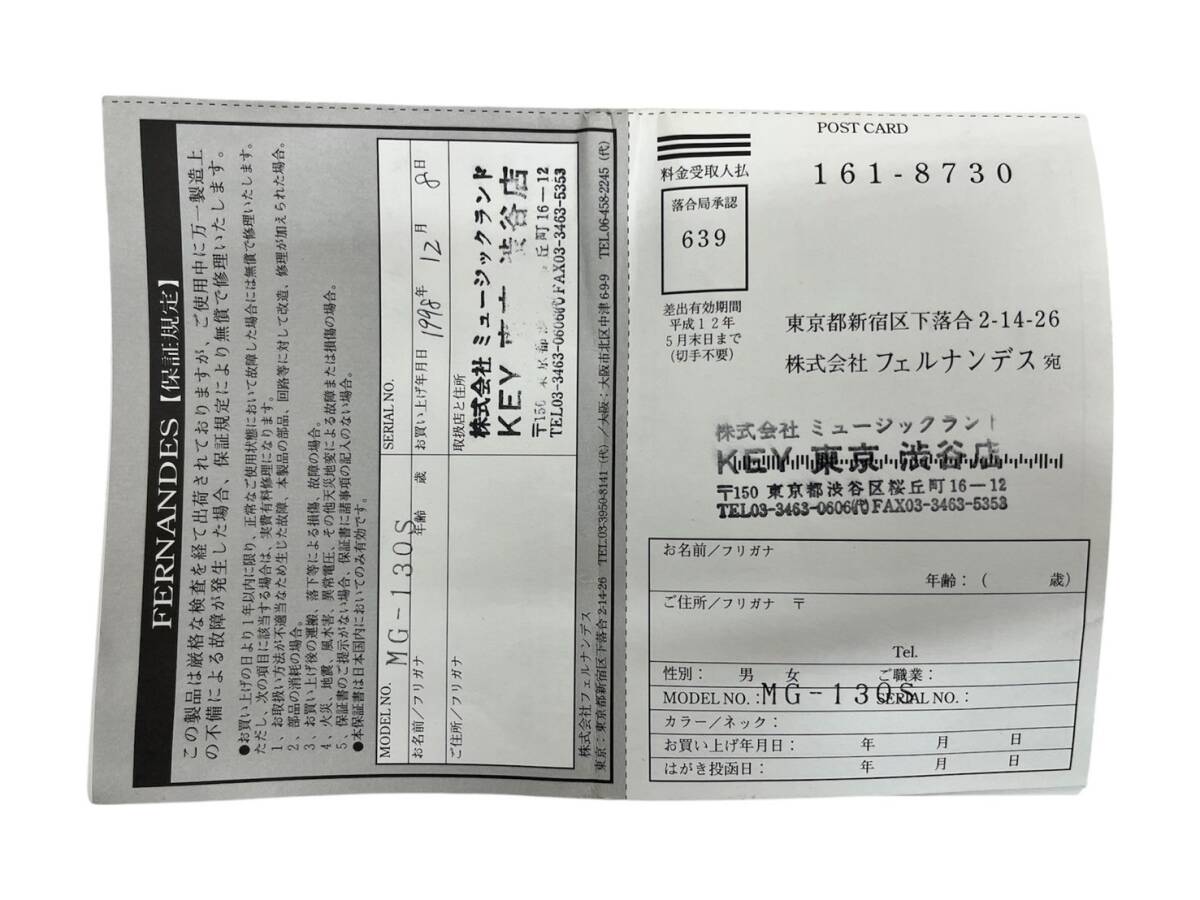 FERNANDES【保証規定】
この製品は厳格な検査を経て出荷されておりますが、ご使用中に万一製造上
の不備による故障が発生した場合、保証規定により無償で修理いたします。
●お買い上げの日より1年以内に限り、正常なご使用状態において故障した場合には無償で修理いたします。
ただし、次の項目に該当する場合は、実費有料修理になります。
1、お取扱い方法が不適当なため生じた故障、本製品の部品、回路等に対して改造、修理が加えられた場合。
2、部品の消耗の場合。
3、お買い上げ後の運搬、落下等による損傷、故障の場合。
4、火災、地震、風水害、異常電圧、その他天災地変による故障または損傷の場合。
5、保証書のご提示がない場合、保証書に諸事項の記入のない場合。
●本保証書は日本国内においてのみ有効です。
MODEL NO. MG-130S SERIAL NO.
お名前/フリガナ 年齢 歳 お買い上げ年月日 1998年 12月 8日
ご住所/フリガナ 取扱店と住所
株式会社 ミュージックランド
KEY 渋谷店
〒150 東京都 丘町16-12
TEL03-3463-0606㈹FAX03-3463-5353
株式会社フェルナンデス
東京:東京都新宿区下落合2-14-26 TEL.03-3950-8141(代)/大阪:大阪市北区中津6-9-9 TEL.06-458-2245(代)
POST CARD
料金受取人払
落合局承認
639
差出有効期間
平成12年
5月末日まで
(切手不要)
161-8730
東京都新宿区下落合2-14-26
株式会社 フェルナンデス 宛
株式会社 ミュージックランド
KEY 東京 渋谷店
〒150 東京都渋谷区桜丘町16-12
TEL03-3463-0606㈹FAX03-3463-5353
お名前/フリガナ
年齢:( 歳)
ご住所/フリガナ 〒
Tel.
性別: 男 女 ご職業:
MODEL NO.:MG-130S SERIAL NO.:
カラー/ネック:
お買い上げ年月日: 年 月 日
はがき投函日: 年 月 日